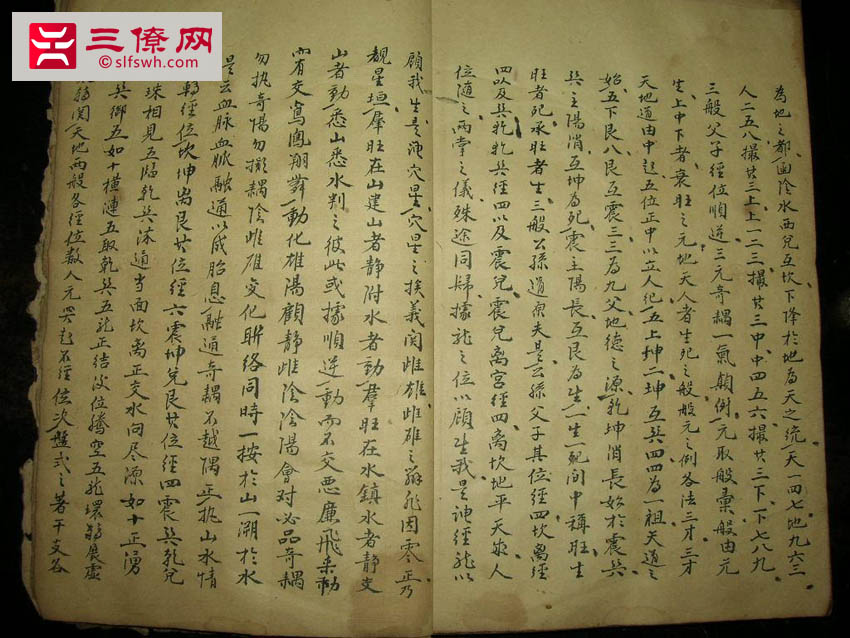 三僚网
www.slfswh.com
為地之都面陰水西兌互坎下降於地為天之統天一四七地九六三
人二五八撮廿三上上一二三撮廿三中中四五六撮廿三下下七八九
三般父子經位順逆三元奇耦一氣顛倒元取般彙般由元
生上中下者衰旺之元地天人者生死之般般元之例各法三才三才
天地道由中起五位正中以立人紀五上坤二坤互巽四四為一祖天道之
始五下艮八艮互震三三為九父地德之源乾坤消長始於震巽
巽主陽消互坤為死震主陽長互艮為生一生一死間中稱旺生
旺者死承旺者生三般公孫道原夫是公孫父子其位經四坎離經
四以及巽乾乾巽經四以及震兌震兌離宮經四離坎地平天 人
位隨之兩掌之儀殊途同歸據龍之位以顧生我是神經龍以
顧我生是神穴星穴星之挨義関雌雄雌雄之辩飛因零正乃
観星垣羣旺在山建山者静附水者動羣旺在水鎮水者静交
山者動悉山悉水判之彼此或據順逆一動而不交悪廉飛来動
而有交鸞鳳翔舞動化雄陽顧静雌陰陰陽會对必品奇耦
勿执奇陽勿擬耦陰雌雄交化聨络同時一按於山一溯於水
是云血脉血脈融通以成胎息融通奇耦不越隅正执山水情
轉經位坎坤离艮廿位經六震坤兌艮廿位經四震巽乾兌
珠相見五臨乾巽沐道当面坎离正交水向尽源如十正湧
巽御五如十横連五取乾巽五充正結次位騰空五龍環 展虚
関天地两般各經位敖人元哭起不經位次盤式之著干支各